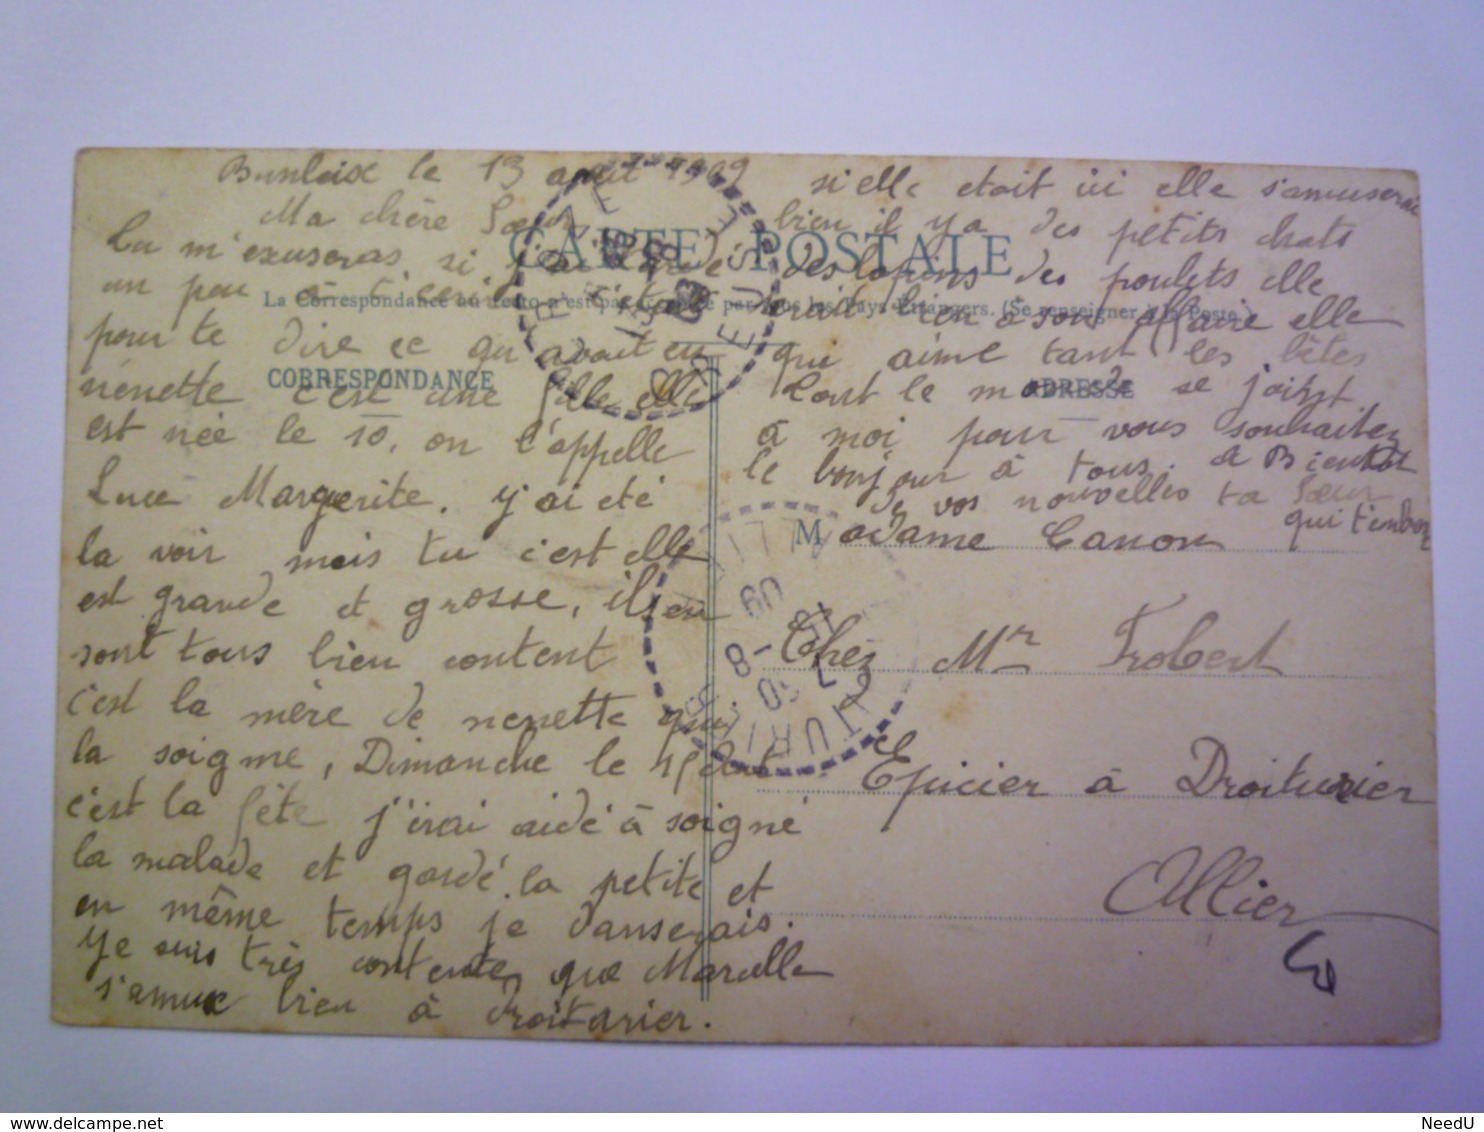 le 13 août 1909
Ma chère Sœur
Tu m'excuseras si j'ai tardé
un peu
pour te dire ce qu'avait eu
nenette c'est une fille elle
est née le 10, on l'appelle
Luce Marguerite. j'ai été
la voir mais tu c'est elle
est grande et grosse, ils en
sont tous bien content
c'est la mère de nenette qui
la soigne, Dimanche le 15
c'est la fête j'irai aidé à soigné
la malade et gardé la petite et
en même temps je danserais.
je suis très contente que Marcelle
s'amuse bien à droiturier.
si elle etait ici elle s'amuserai
bien il y a des petits chats
des lapins des poulets elle
serait bien a son affaire elle
qui aime tant les bêtes
Tout le monde se joint
à moi pour vous souhaiter
le bonjour à tous. a Bientot
de vos nouvelles ta Sœur
qui t'embrasse
CARTE POSTALE
La Correspondance au recto n'est pas acceptée par tous les Pays Étrangers. (Se renseigner à la Poste)
CORRESPONDANCE
ADRESSE
Madame Canon
Chez Mr Frobert
Epicier à Droiturier
Allier
DROITURIER
ALLIER
7 50
18 -8
09
NeedU
www.delcampe.net